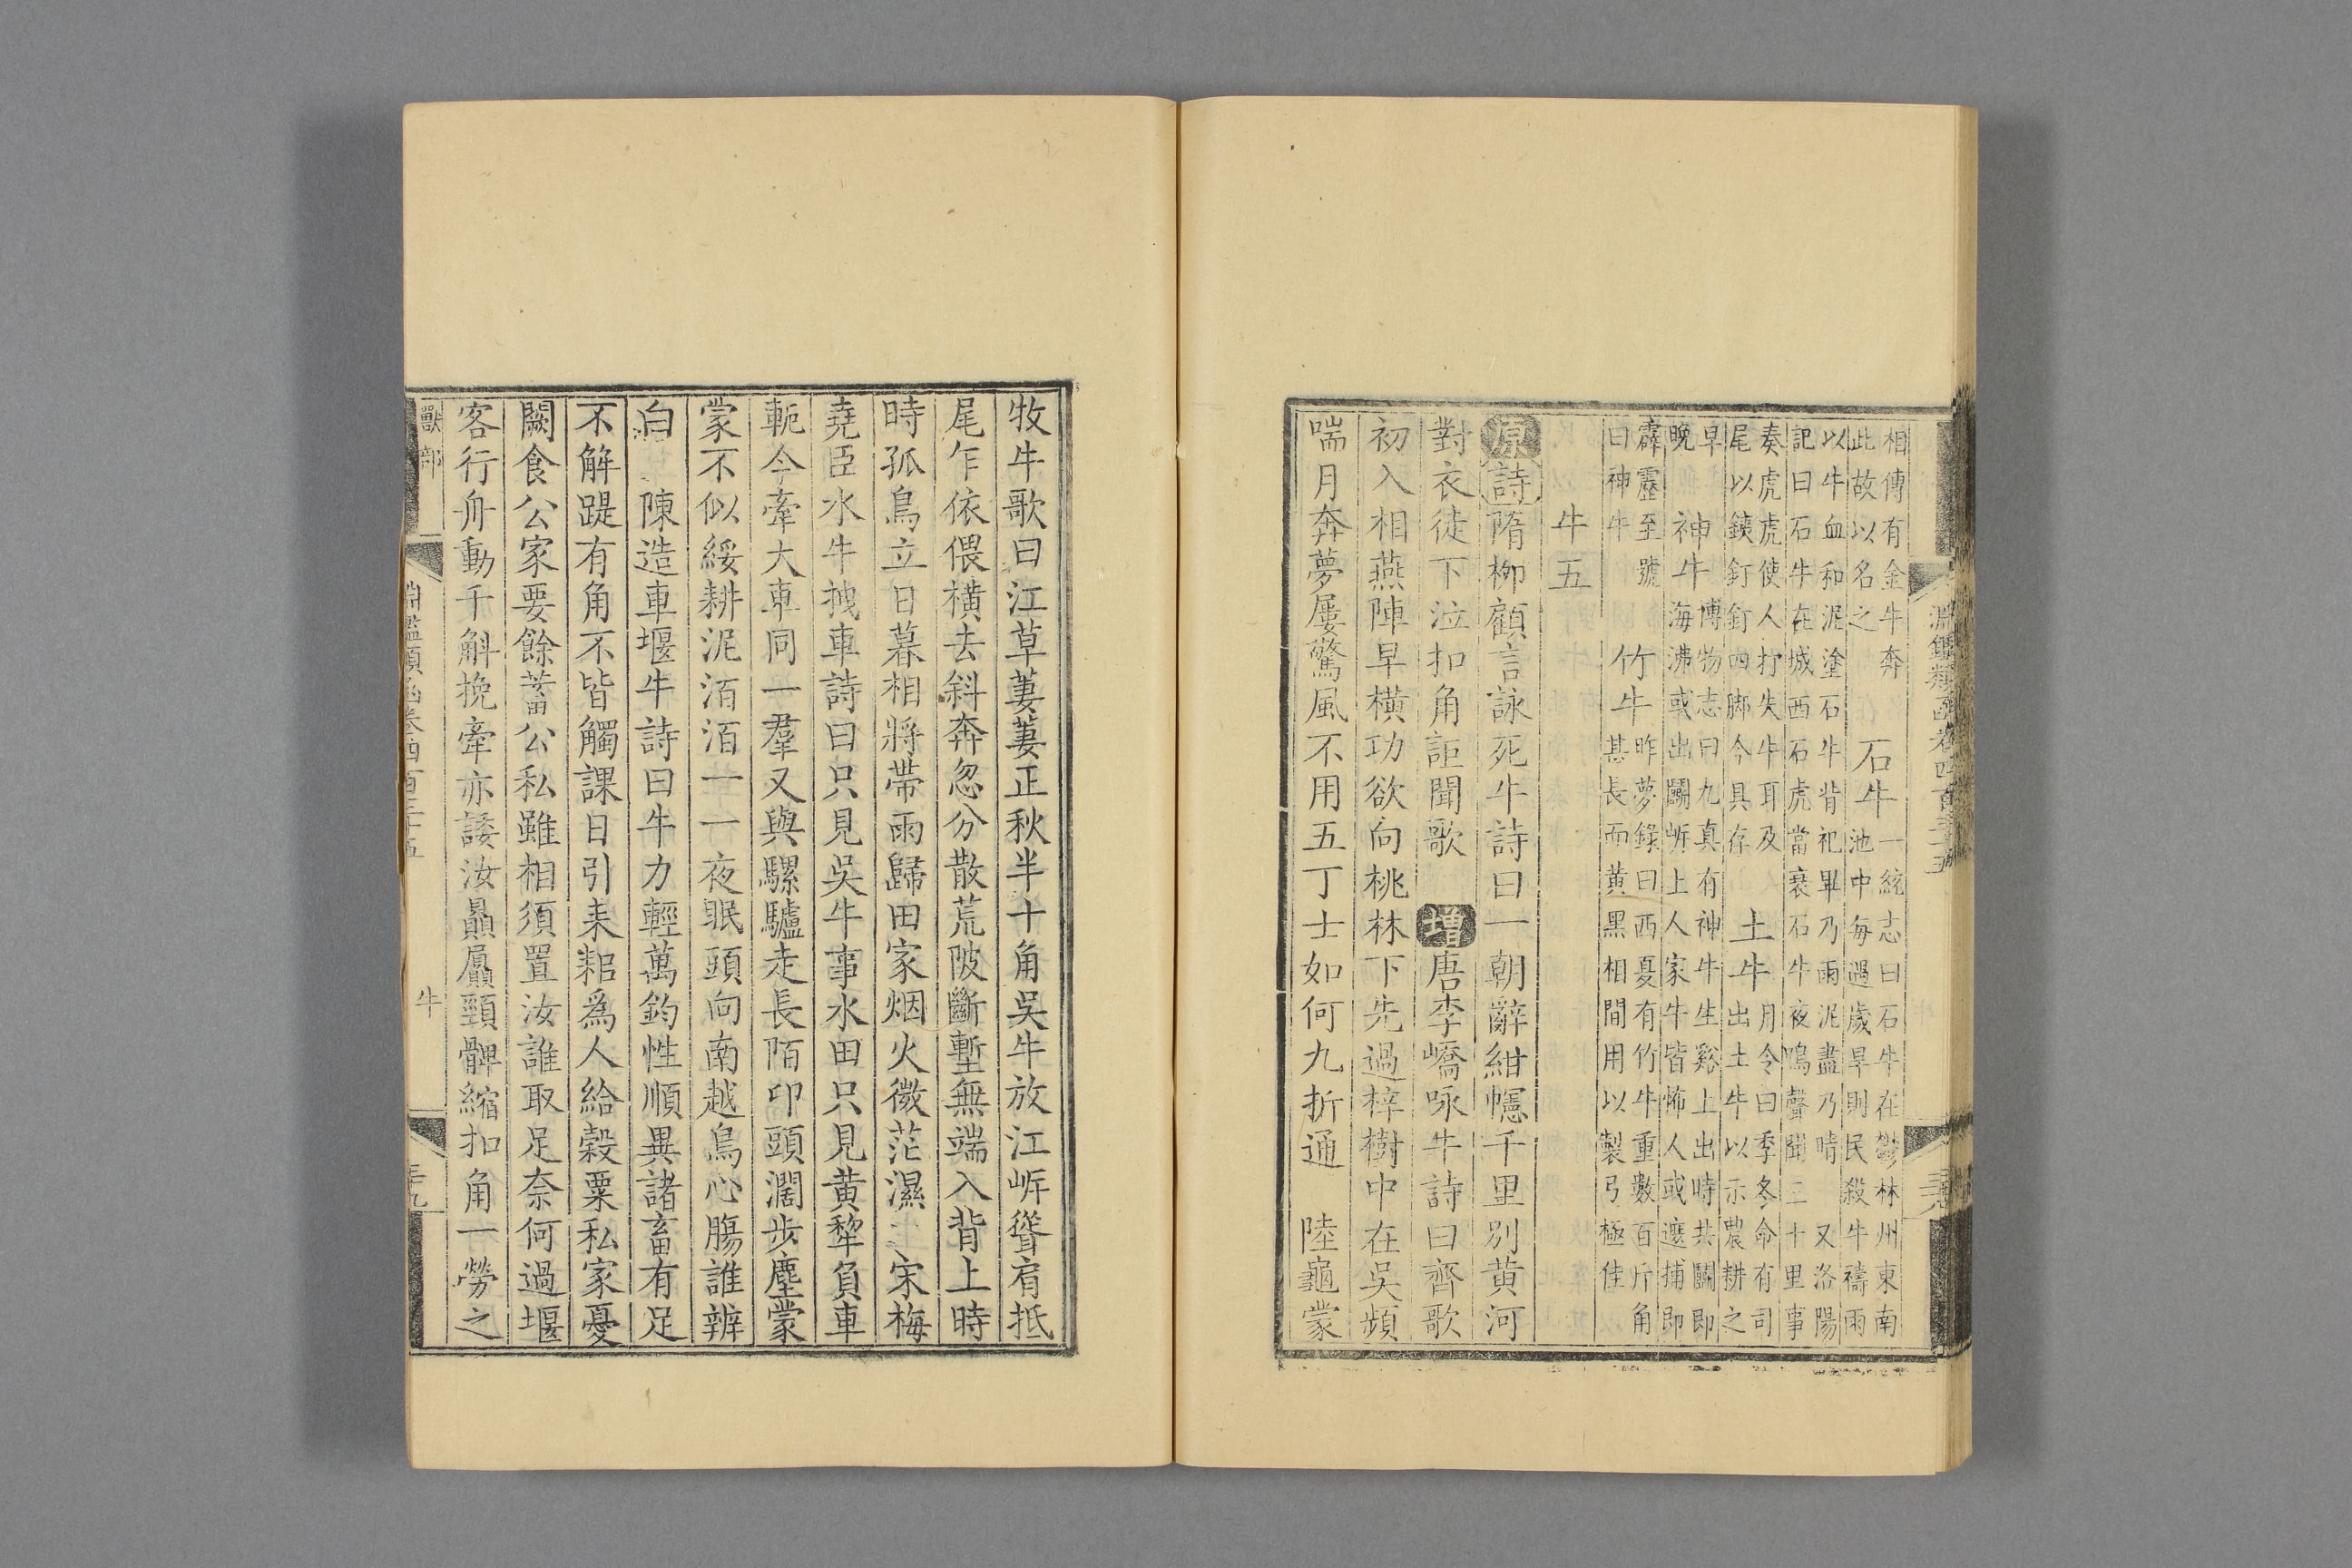 淵鑑類函卷四百三十五
相傳有金牛奔
此故以名之
石牛
一統志曰石牛在鬱林州東南
池中每遇歲旱則民殺牛禱雨
以牛血和泥塗石牛背祀畢乃雨泥盡乃晴 又洛陽
記曰石牛在城西石虎當襄石牛夜鳴聲聞三十里事
奏虎虎使人打失牛耳及
尾以鐵釘釘四脚今具存
土牛
月令曰季冬命有司
出土牛以示農耕之
早
晚
神牛
博物志曰九真有神牛生谿上出時共鬬即
海沸或出鬬岍上人家牛皆怖人或遮捕即
霹靂至號
曰神牛
竹牛
昨夢錄曰西夏有竹牛重數百斤角
甚長而黄黑相間用以製弓極佳
牛五
原詩隋柳顧言詠死牛詩曰一朝辭紺幰千里别黄河
對衣徒下泣扣角詎聞歌 增唐李嶠咏牛詩曰齊歌
初入相燕陣早横功欲向桃林下先過梓樹中在吴頻
喘月奔夢屢驚風不用五丁士如何九折通 陸龜蒙
牧牛歌曰江草萋萋正秋半十角吴牛放江岍鬵肩抵
尾乍依偎横去斜奔忽分散荒陂斷塹無端入背上時
時孤鳥立日暮相將帶雨歸田家烟火微茫濕 宋梅
堯臣水牛拽車詩曰只見吴牛事水田只見黄犂負車
軛今牽大車同一羣又與騾驢走長陌卬頭濶步塵蒙
蒙不似緩耕泥洦洦一一夜眠頭向南越鳥心腸誰辨
白 陳造車堰牛詩曰牛力輕萬鈞性順異諸畜有足
不解踶有角不皆觸課日引耒耜爲人給穀粟私家憂
闕食公家要餘蓄公私雖相須置汝誰取足奈何過堰
客行舟動千斛挽牽亦諉汝贔屭頸髀縮扣角一勞之
獸部
淵鑑類函卷四百三十五
牛
三十九